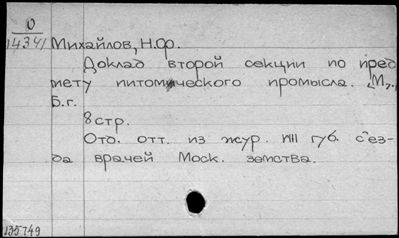 О
1434/ Михайлов, Н.Ф.
Доклад второй секции по пред
мету питомческого промысла. [М.,
Б.г.
8 стр.
Отд. отт. из жур. XIII губ. съез-
да врачей Моск. земства.
135749